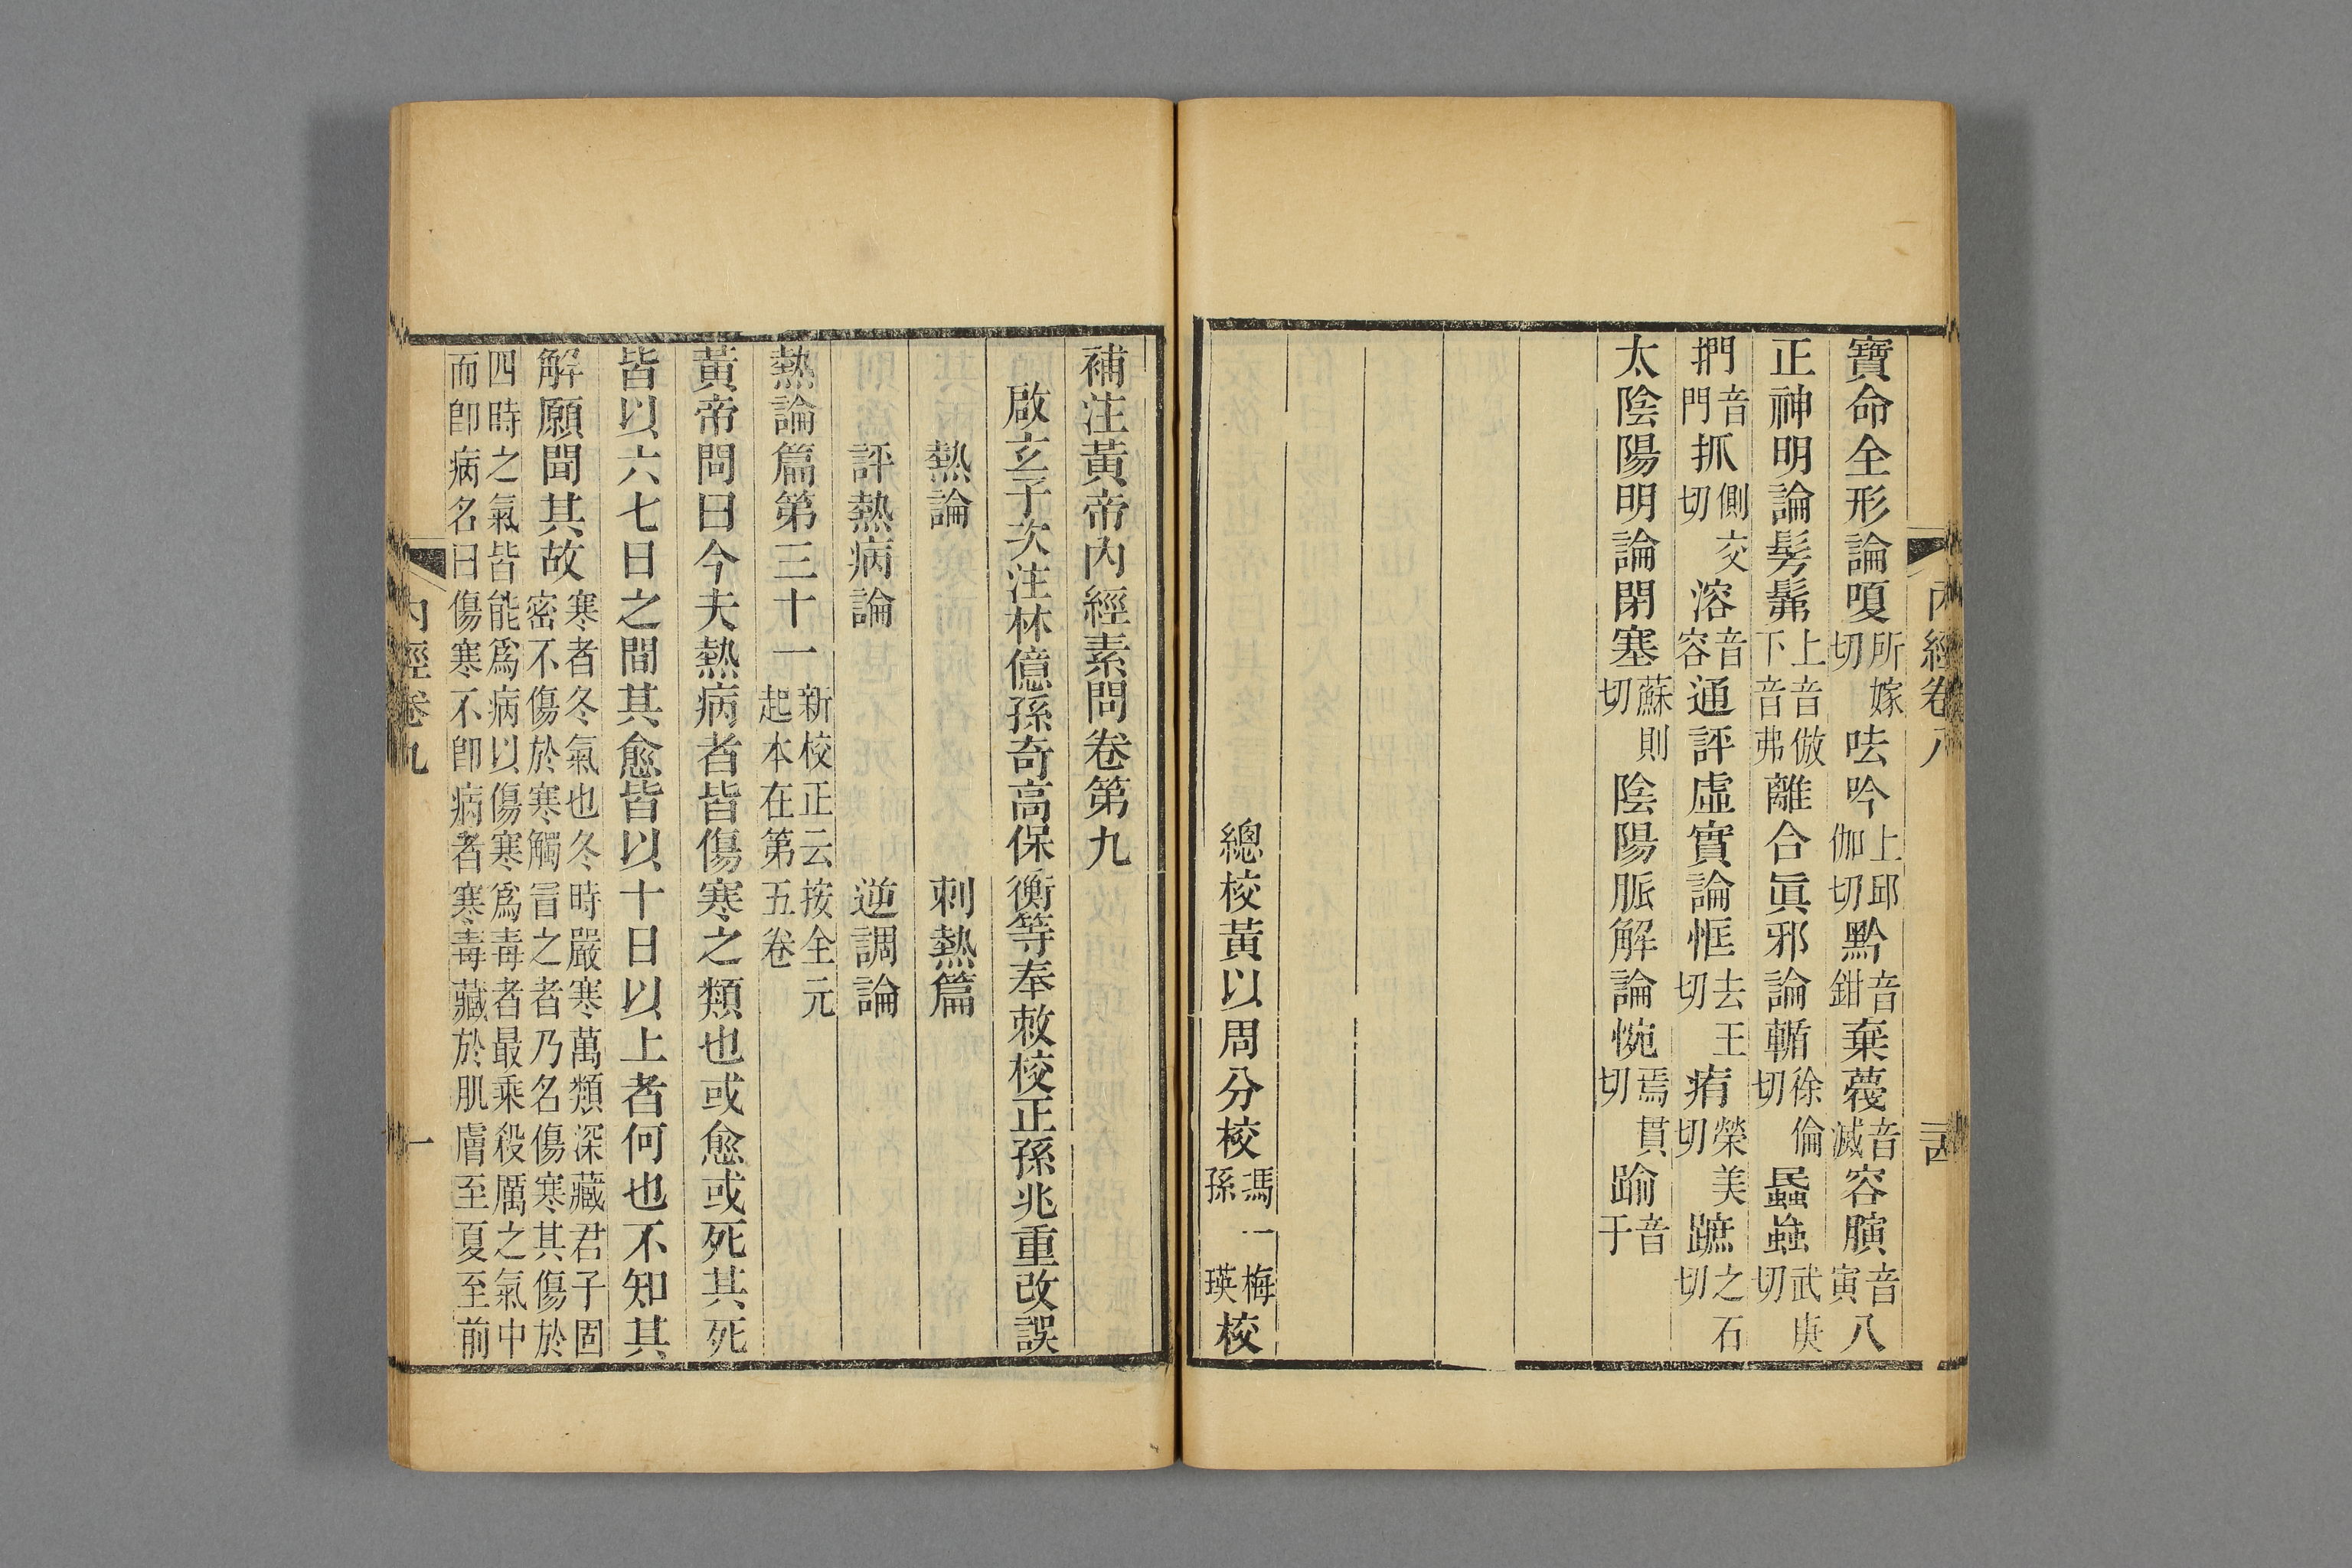 寶命全形論嗄所嫁切呿吟上邱伽切黔音鉗棄薎音滅容䐺音寅八
正神明論髣髴上音倣下音弗離合眞邪論輴徐倫切䗈䖟武庚切
捫音門抓側交切溶音容通評虛實論恇去王切痏榮美切蹠之石切
太陰陽明論閉塞蘇則切陰陽脈解論惋焉貫切踰音于
總校黃以周分校馮一梅孫瑛校
內經卷八
補注黃帝內經素問卷第九
啟玄子次注林億孫奇高保衡等奉敕校正孫兆重改誤
熱論 刺熱篇
評熱病論 逆調論
熱論篇第三十一新校正云按全元起本在第五卷
黃帝問曰今夫熱病者皆傷寒之類也或愈或死其死
皆以六七日之間其愈皆以十日以上者何也不知其
解願聞其故寒者冬氣也冬時嚴寒萬類深藏君子固密不傷於寒觸冒之者乃名傷寒其傷於
四時之氣皆能爲病以傷寒爲毒者最乘殺厲之氣中而卽病名曰傷寒不卽病者寒毒藏於肌膚至夏至前
內經卷九
一